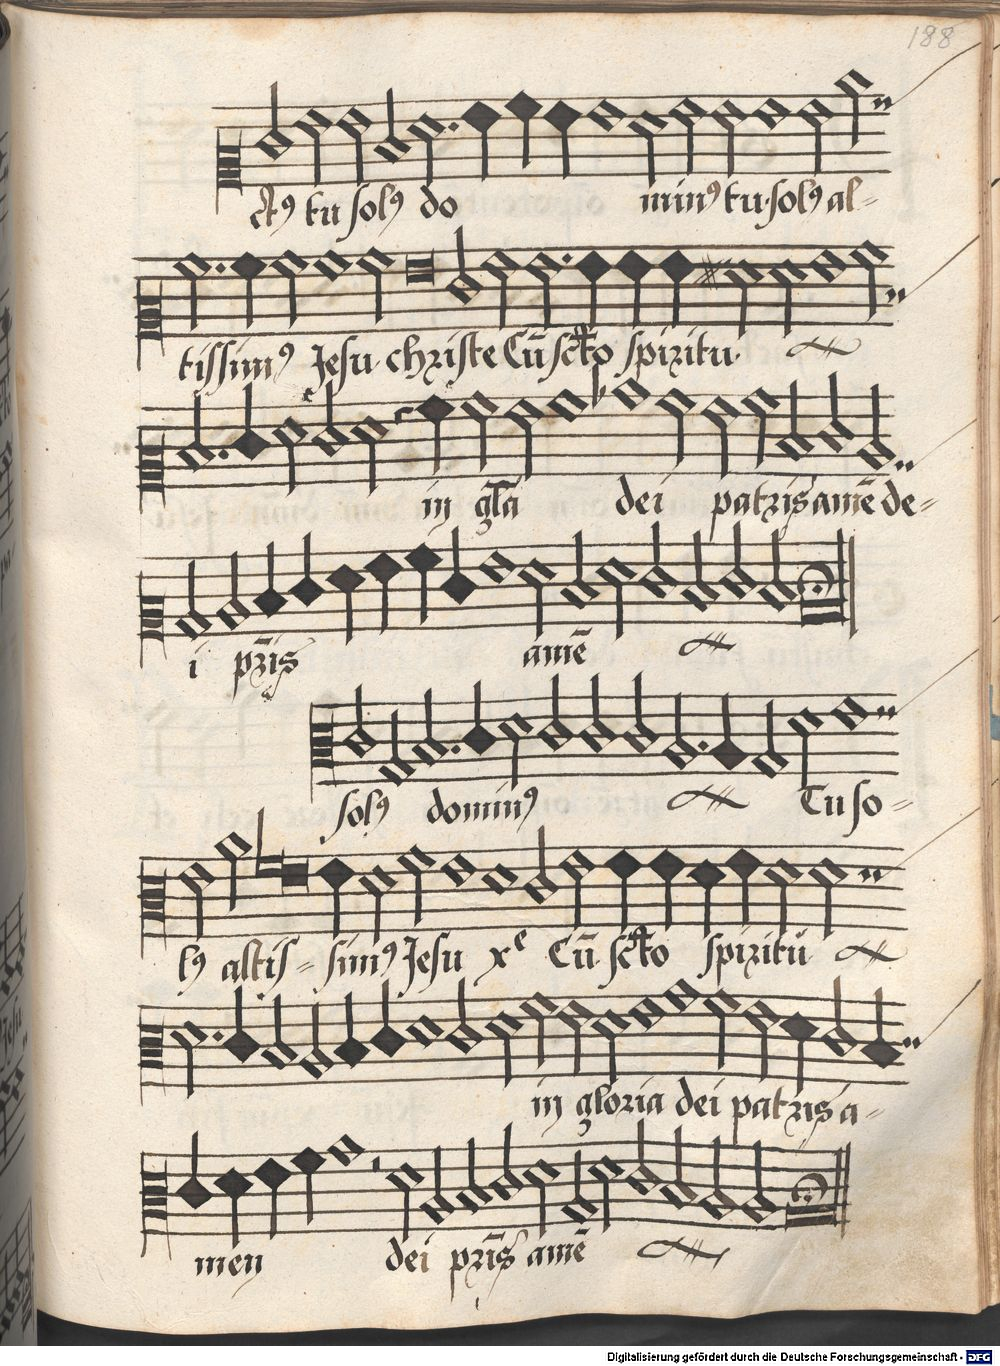 188
ctꝰ tu solꝰ do minꝰ tu solꝰ al-
tissimꝰ Jesu christe Cū sctō spiritu
in gl̄a dei patris amē de-
i pr̄is amē
solꝰ dominꝰ Tu so-
lꝰ altis- simꝰ Jesu xᵉ Cū sctō spiritu
in gloria dei patris a-
men dei pr̄is amē
Digitalisierung gefördert durch die Deutsche Forschungsgemeinschaft - DFG